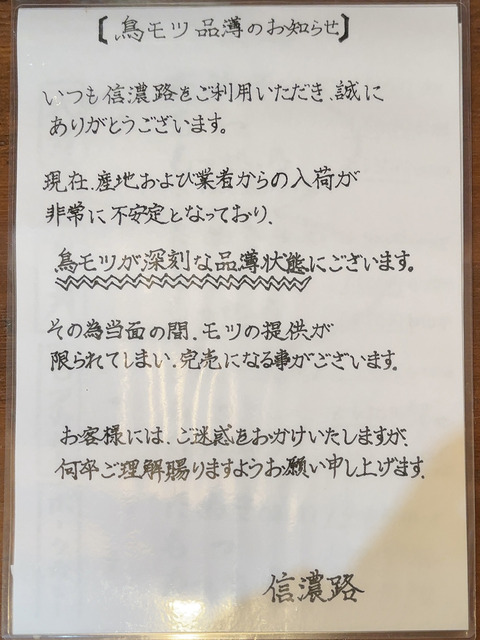 【鳥モツ品薄のお知らせ】
いつも信濃路をご利用いただき、誠に
ありがとうございます。
現在、産地および業者からの入荷が
非常に不安定となっており、
鳥モツが深刻な品薄状態にございます。
その為当面の間、モツの提供が
限られてしまい、完売になる事がございます。
お客様には、ご迷惑をおかけいたしますが、
何卒ご理解賜りますようお願い申し上げます。
信濃路